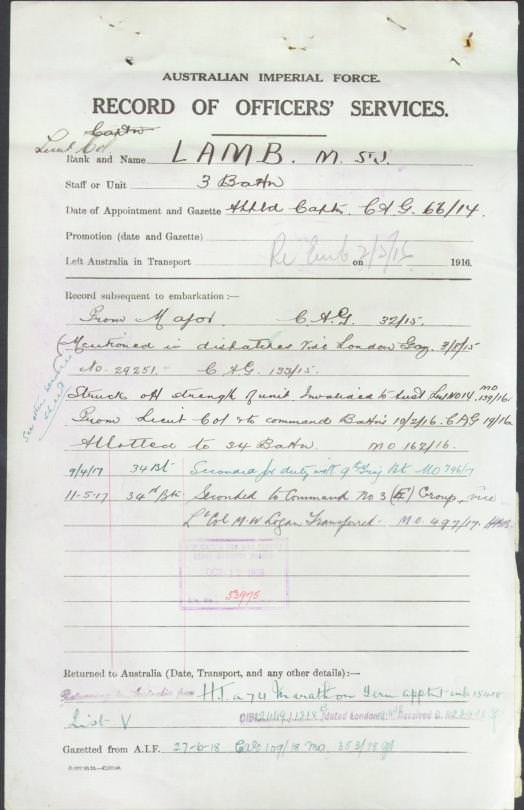 14
AUSTRALIAN IMPERIAL FORCE.
RECORD OF OFFICERS' SERVICES.
Captn
Lieut Col
Rank and Name LAMB. M. St J.
Staff or Unit 3 Battn
Date of Appointment and Gazette Captn. C A G. 66/14.
Promotion (date and Gazette)
Left Australia in Transport Re Emb on 2/5/16 1916.
Record subsequent to embarkation:—
Prom Major. C.A.G. 32/15.
Mentioned in dispatches vide London Gaz.
No. 29251. C A G. 133/15.
See other service sheet
Struck off strength of unit Invalided to Aust List No 14 MO 139/16
Prom Lieut Col & to command Battns 10/2/16. CAG 19/16
Allotted to 34 Battn. MO 162/16.
9/4/17 34 Bt Seconded for duty with 9th Trng Bt MO 796/17
11-5-17 34th Btn Seconded to Command No 3 Group, vice
Lt Col M.W. Logan Transferred. M.O. 497/17.
53975
Returned to Australia (Date, Transport, and any other details):—
Returning to Australia per H.T. A 74 Marathon Term appt
List V dated London
Gazetted from A.I.F. 27-6-18 CAG 109/18 MO. 353/18